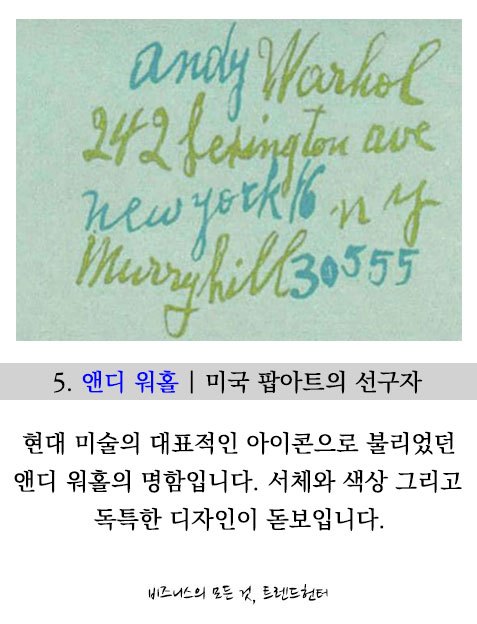 andy Warhol
242 lexington ave
new york 16 n y
Murryhill 30555
5. 앤디 워홀 | 미국 팝아트의 선구자
현대 미술의 대표적인 아이콘으로 불리었던
앤디 워홀의 명함입니다. 서체와 색상 그리고
독특한 디자인이 돋보입니다.
비즈니스의 모든 것, 트렌드헌터